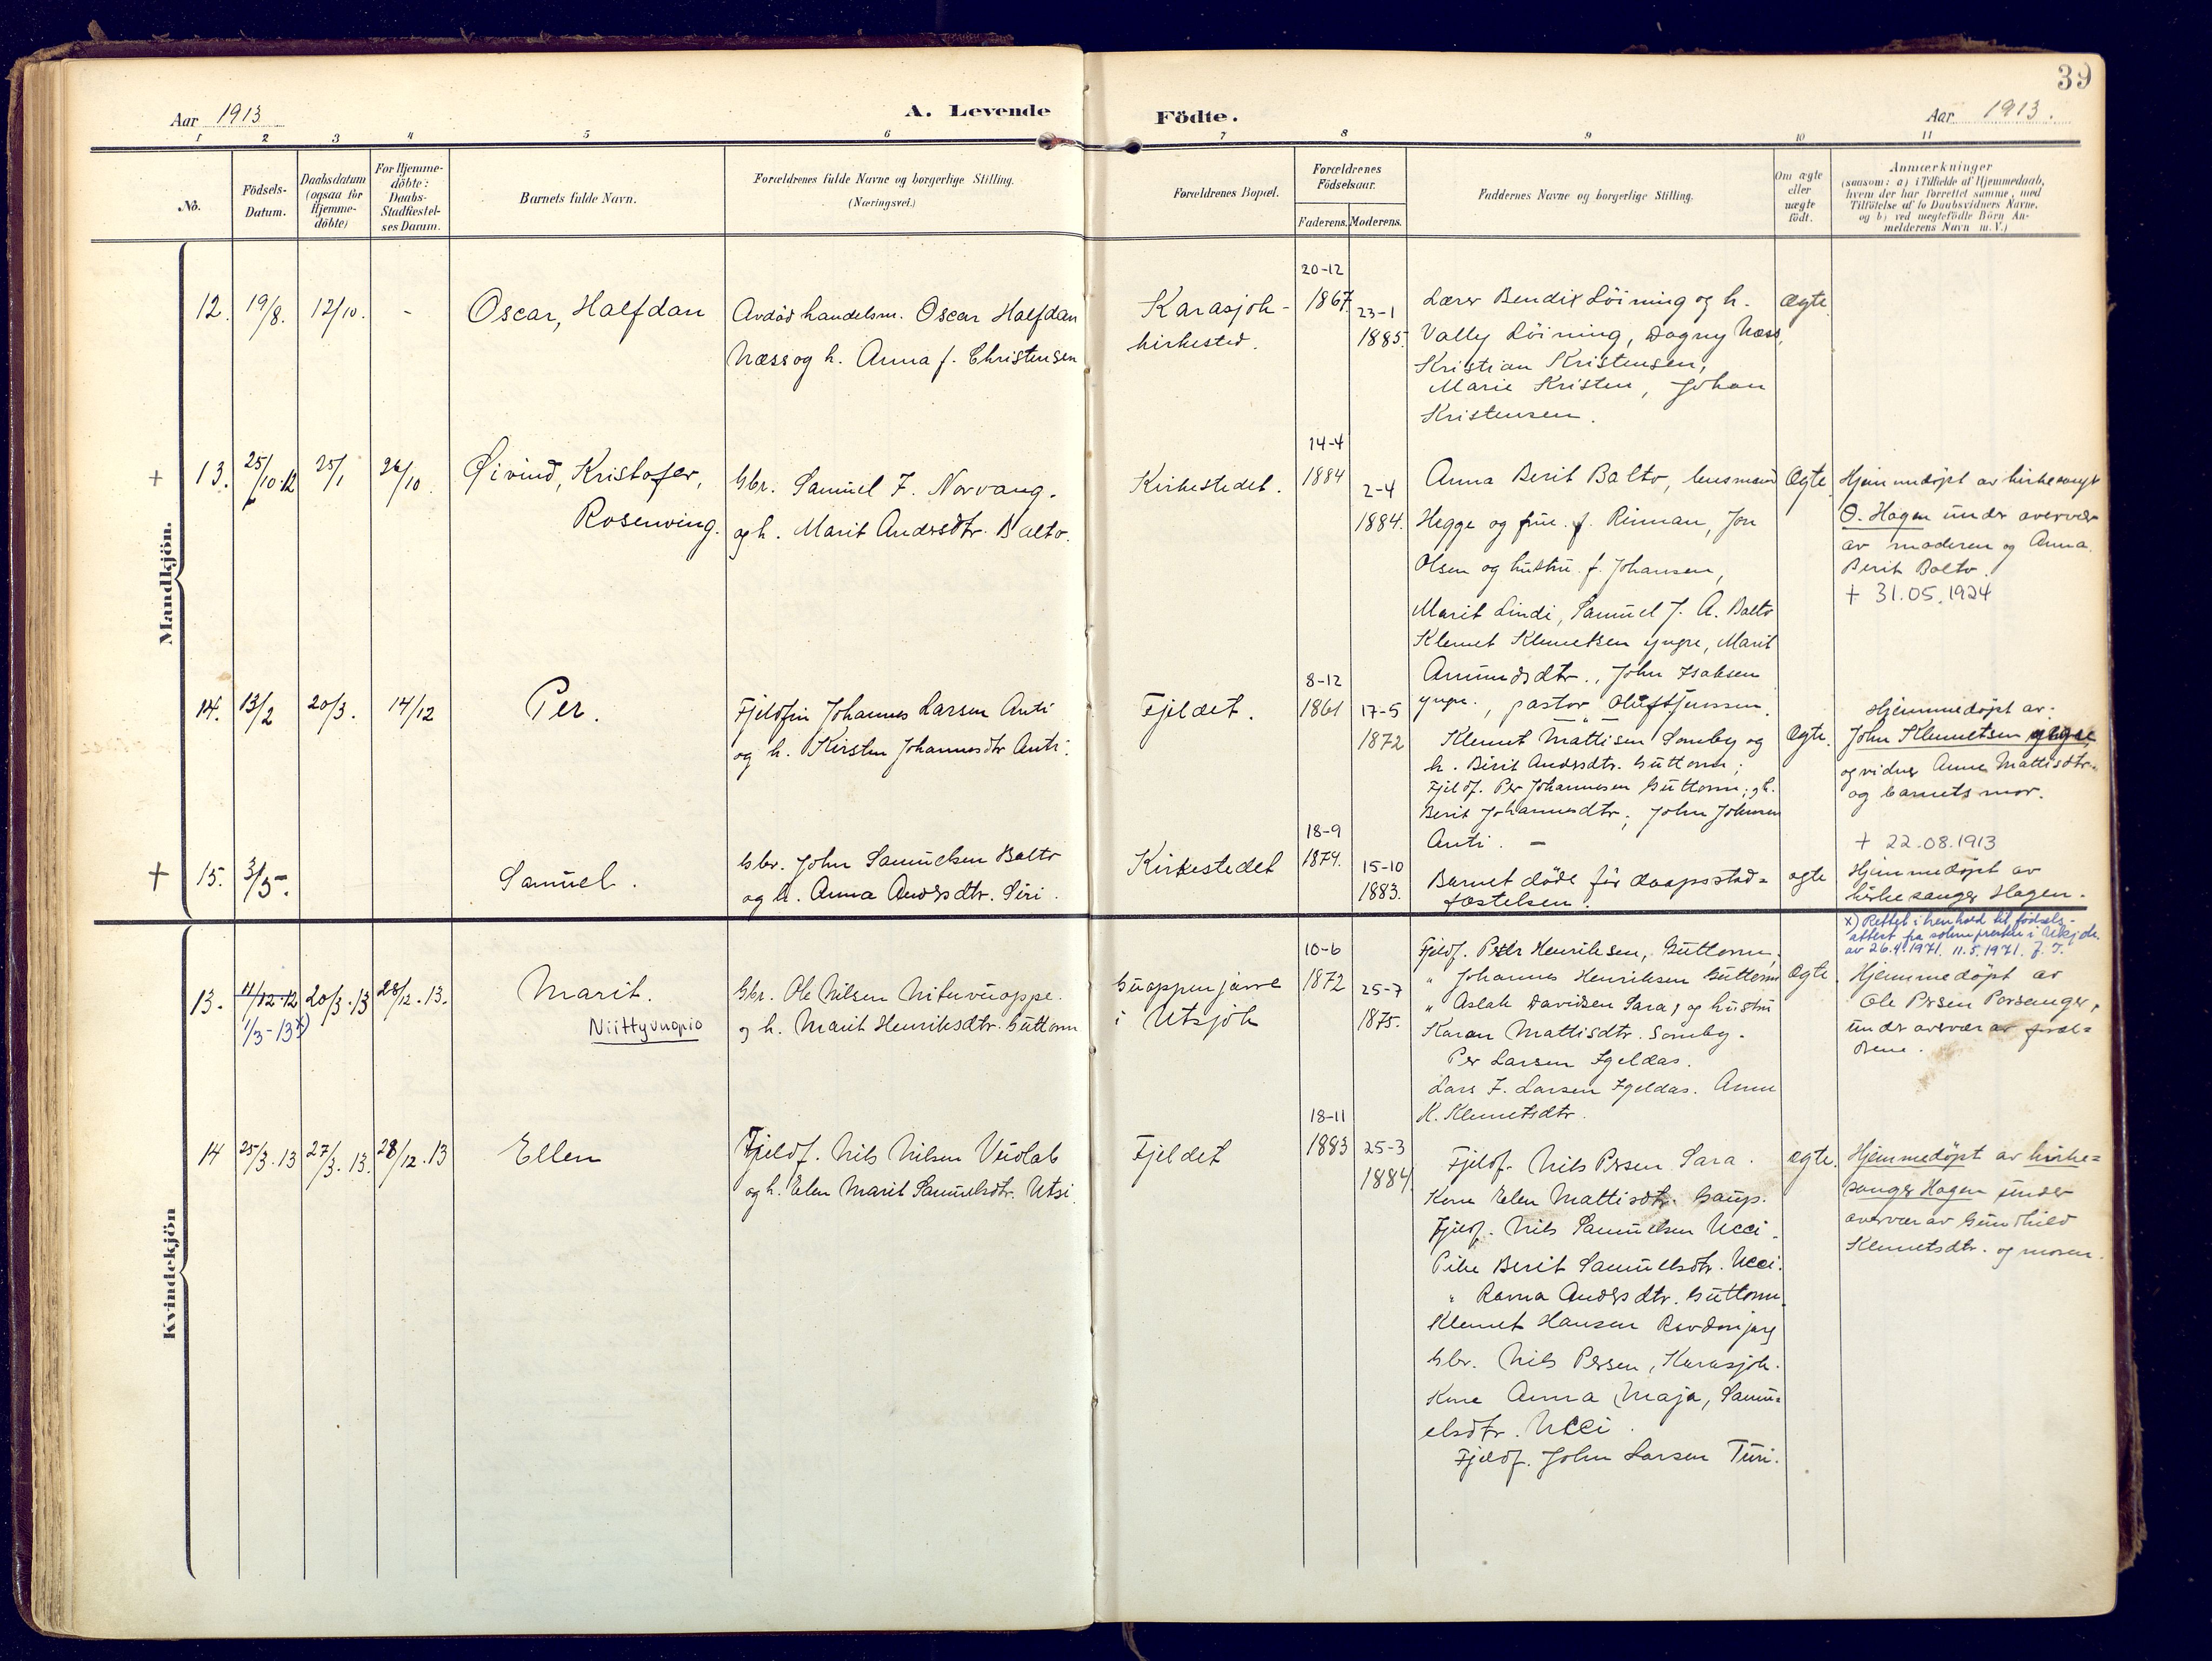 39
Aar 1913
A. Levende
Födte.
Aar 1913.
1 2 3 4 5 6 7 8 9 10 11
No.
Födsels-
Datum.
Daabsdatum
(ogsaa for
Hjemme-
döbte)
For Hjemme-
döbte:
Daabs-
Stadfæstel-
ses Datum.
Barnets fulde Navn.
Forældrenes fulde Navne og borgerlige Stilling.
(Næringsvei.)
Forældrenes Bopæl.
Forældrenes
Födselsaar.
Faderens. Moderens.
Faddernes Navne og borgerlige Stilling.
Om ægte
eller
uægte
født.
Anmærkninger
(saasom: a) i Tilfælde af Hjemmedaab,
hvem der har forrettet samme, med
Tilføielse af to Daabsvidners Navne,
og b) ved uegtefödte Börn An-
melderens Navn m. V.)
Mandkjön.
12. 19/8. 12/10. -
Oscar, Halfdan
Avdöd handelsm. Oscar Halfdan
Næss og h. Anna f. Christensen
Karasjok-
kirkested.
20-12
1867
23-1
1885.
Lærer Bendix Löining og h.
Vally Löining, Dagny Næss,
Kristian Kristensen,
Marie Kristen, Johan
Kristensen.
Ægte
+ 13. 25/10.12 25/1 26/10.
Øivind, Kristofer,
Rosenwing.
Gbr. Samuel F. Norvang.
og h. Marit Andersdtr. Balto.
Kirkestedet.
14-4
1884
2-4
1884.
Anna Berit Balto, lensmand
Hegge og frue f. Rinman, Jon
Olsen og hustru f. Johansen,
Marit Lindi, Samuel J. A. Balto
Klemet Klemetsen yngre, Marit
Amundsdtr., John Isaksen
yngre., pastor Oluf Jenssen.
Ægte.
Hjemmedöpt av kirkesanger
O. Hagen under overvær
av moderen og Anna
Berit Balto.
+ 31.05.1924
14. 13/2 20/3. 14/12
Per.
Fjeldfin Johannes Larsen Anti
og h. Kirsten Johannesdtr Anti.
Fjeldet.
8-12
1861
17-5
1872
Klemet Mattisen Somby og
h. Berit Andersdtr. Guttorm;
Fjeldf. Per Johannesen Guttorm; og h.
Berit Johannesdtr; John Johnsen
Anti. -
Ægte.
Hjemmedöpt av:
John Klemetsen yngre
og vidner Anne Mattisdtr.
og barnets mor.
+ 15. 3/5.
Samuel.
Gbr. John Samuelsen Balto
og h. Anna Andersdtr. Siri.
Kirkestedet
18-9
1874.
15-10
1883.
Barnet döde för daapsstad=
fæstelsen.
ægte
+ 22.08.1913
Hjemmedöpt av
kirkesanger Hagen.
Kvindekjön
13. 11/12-12 20/3.13 28/12.13.
1/3-13 x)
Marit.
Niittyvuopio
Gbr. Ole Nilsen Nituvuoppe.
og h. Marit Henriksdtr. Guttorm
Guoppenjarre
i Utsjok
10-6
1872
25-7
1875.
Fjeldf. Peder Henriksen, Guttorm,
" Johannes Henriksen Guttorm
" Aslak Davidsen Sara, og hustru
Karen Mattisdtr. Somby.
Per Larsen Fjeldas.
Lars F. Larsen Fjeldas. Anne
K. Klemetsdtr.
Ægte
x) Rettet i henhold til födsels-
attest fra sokneprest i Utsjok
av 26.4.1971. 11.5.1971. J. J.
Hjemmedöpt av
Ole Persen Porsanger,
under overvær av foræl=
drene.
14 25/3.13 27/3.13. 28/12.13
Ellen
Fjeldf. Nils Nilsen Veidlab
og h. Elen Marit Samuelsdtr. Utsi.
Fjeldet
18-11
1883
25-3
1884
Fjeldf. Nils Persen Sara.
Kone Elen Mattisdtr. Gaup.
Fjeldf. Nils Samuelsen Ucci.
Pike Berit Samuelsdtr. Ucci.
" Ravna Andersdtr. Guttorm.
Klemet Hansen
Gbr. Nils Persen, Karasjok.
Kone Anna Maja, Samu=
elsdtr. Ucci.
Fjeldf. John Larsen Turi.
ægte.
Hjemmedöpt av kirke=
sanger Hagen under
overvær av Gundhild
Klemetsdtr. og moren.